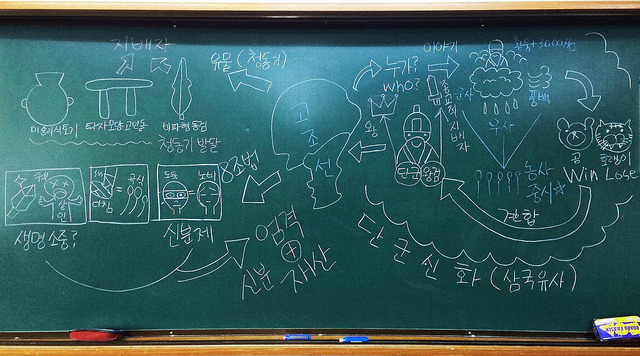 지배자
유물 (청동기)
미송리식토기
탁자모양고인돌
비파형동검
청동기 발달
고
조
선
8조법
살인
다침
곡식
도둑
노비
생명 소중?
신분제
엄격
신분
재산
누가?
who?
왕
종교적 지배자
단군 왕검
이야기
환웅+3000명
운사
우사
풍백
농사
중시*
곰
호랑이
Win Lose
결합
단군신화 (삼국유사)